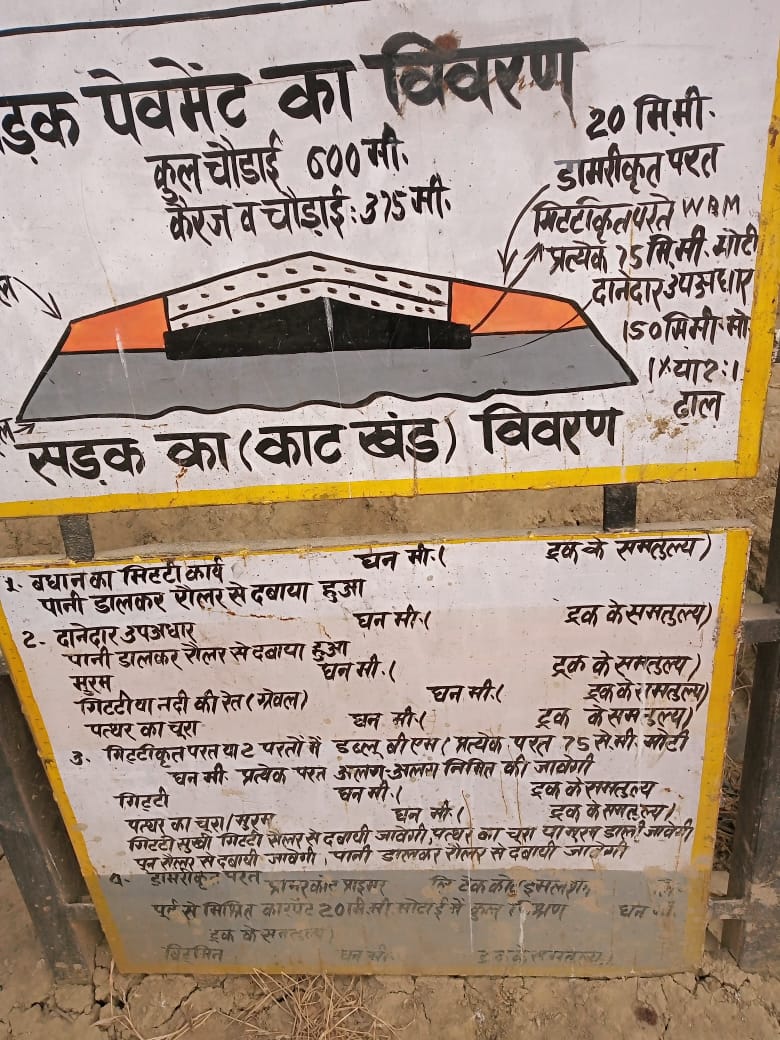 ड़क पेवमेंट का विवरण
कुल चौडाई 600 मी.
कैरज व चौड़ाई: 375 मी.
20 मि.मी.
डामरीकृत परत
गिटटीकृत परते WBM
प्रत्येक 75 मि.मी. मोटी
दानेदार उपअधार
150 मि.मी. मो
ढाल
सड़क का (काट खंड) विवरण
1. बधान का मिटटी कार्य घन मी.( ट्रक के समतुल्य)
पानी डालकर रौलर से दबाया हुआ
घन मी.( ट्रक के समतुल्य)
2- दानेदार उपअधार
पानी डालकर रौलर से दबाया हुआ
मुरम घन मी.( ट्रक के समतुल्य)
गिटटी या नदी की रेत (ग्रेवल) घन मी.( ट्रक के समतुल्य)
पत्थर का चूरा घन मी.( ट्रक के समतुल्य)
3. गिटटीकृत परत या 2 परतों में डब्लू बी एम ( प्रत्येक परत 75 से.मी. मोटी
घन मी. प्रत्येक परत अलग-अलग निमित की जावेगी
गिटटी घन मी.( ट्रक के समतुल्य
पत्थर का चूरा/मुरम घन मी.( ट्रक के समतुल्य)
गिटटी सुखी गिटटी रौलर से दबायी जावेगी, पत्थर का चूरा या मुरम डाली जावेगी
पुन रौलर से दबायी जावेगी, पानी डालकर रौलर से दबायी जावेगी
डामरीकृत परत प्राइमर
20 मि.मी मोटाई में कुल घन
ट्रक के समतुल्य)
घन मी.